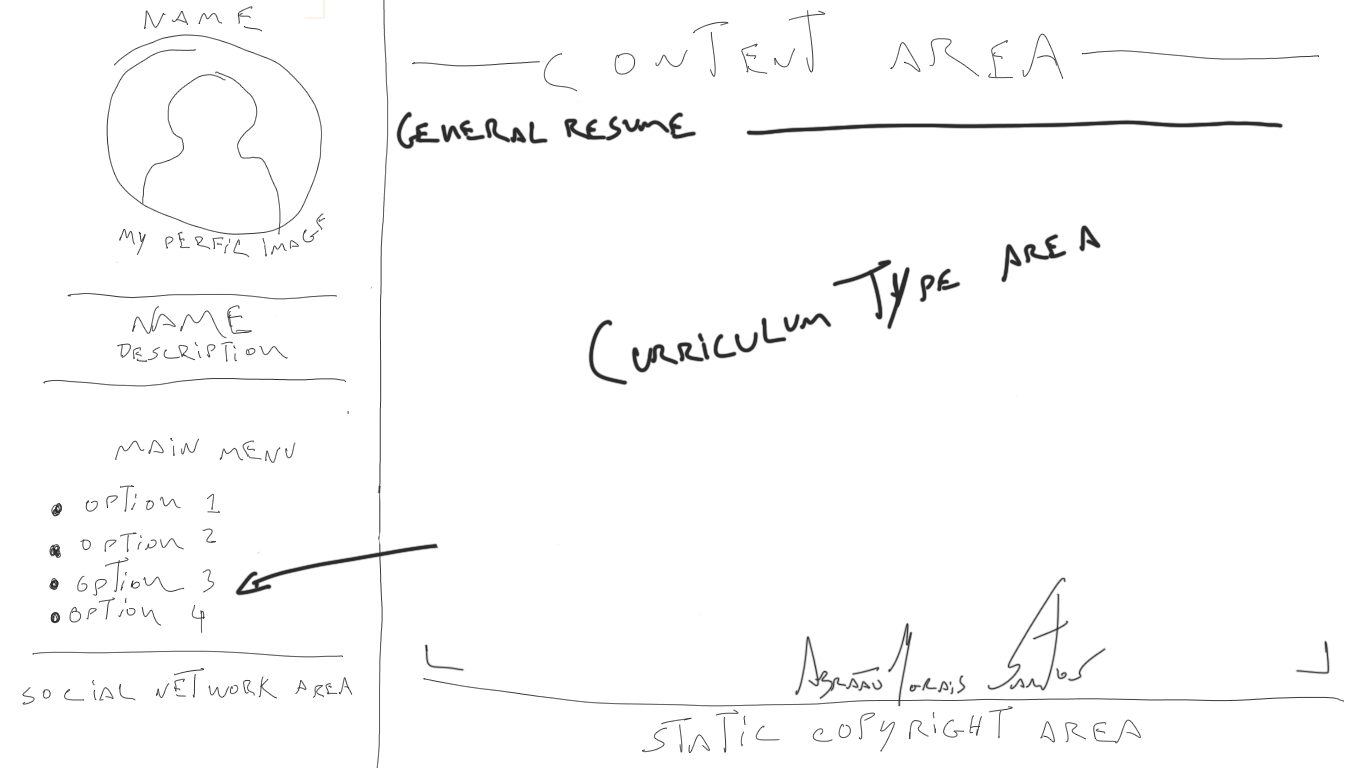 NAME
MY PERFIL IMAGE
NAME
DESCRIPTION
MAIN MENU
OPTION 1
OPTION 2
OPTION 3
OPTION 4
SOCIAL NETWORK AREA
CONTENT AREA
GENERAL RESUME
CURRICULUM TYPE AREA
ABRAÃO MORAIS SANTOS
STATIC COPYRIGHT AREA